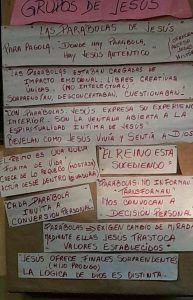 GRUPOS DE JESUS
LAS PARABOLAS DE JESÚS
PARA PAGOLA: "DONDE HAY PARABOLA,
HAY JESUS AUTENTICO"
LAS PARÁBOLAS ESTABAN CARGADAS DE
IMPACTO EMOCIONAL: LIBRES CREATIVAS
UNICAS. (NO INTELECTUAL)
SORPRENDIAN, DESCONCERTABAN, CUESTIONABAN.
CON PARÁBOLAS JESÚS EXPRESA SU EXPERIENCIA
INTERIOR - SON LA VENTADA ABIERTA A LA
ESPIRITUALIDAD INTIMA DE JESUS
REVELAN COMO JESUS VIVIA Y SENTIA A DIOS
EL REINO ES UNA NUEVA
FORMA DE VIDA
NACE DE LO PEQUEÑO (MOSTAZA)
ACTUA DESDE DENTRO
EL REINO ESTA
SUCEDIENDO
CADA PARABOLA
INVITA A
CONVERSION PERSONAL
PARABOLAS: NO INFORMAN
TRANSFORMAN
NOS CONVOCAN A
DECISION PERSONAL
PARABOLAS EXIGEN CAMBIO DE MIRADA
MEDIANTE ELLAS JESUS TRASTOCA
VALORES ESTABLECIDOS
JESUS OFRECE FINALES SORPRENDENTES
(HIJO PRODIGO)
LA LOGICA DE DIOS ES DISTINTA.